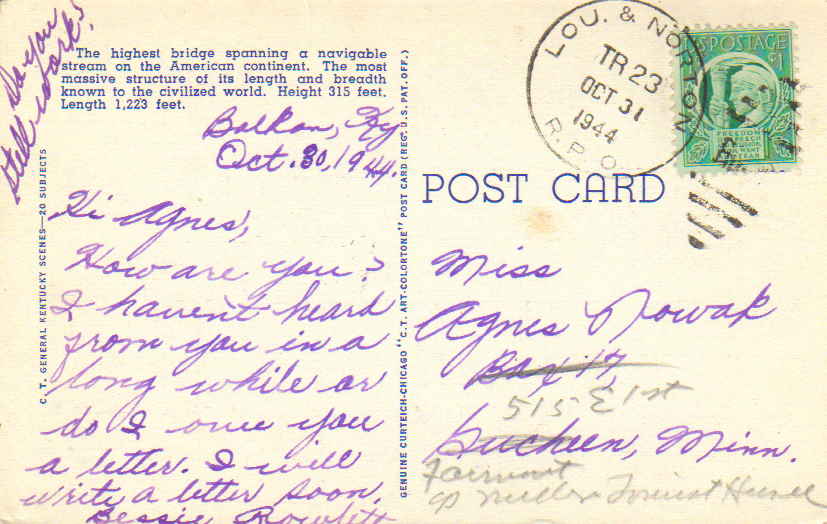 Do you
still work?
The highest bridge spanning a navigable
stream on the American continent. The most
massive structure of its length and breadth
known to the civilized world. Height 315 feet.
Length 1,223 feet.
Balkan, Ky
Oct. 30, 1944.
Hi Agnes,
How are you?
I havent heard
from you in a
long while or
do I owe you
a letter. I will
write a letter soon.
Bessie Rowlett
C. T. GENERAL KENTUCKY SCENES—20 SUBJECTS
GENUINE CURTEICH-CHICAGO "C.T. ART-COLORTONE" POST CARD (REG. U.S. PAT. OFF.)
LOU. & NORTON
TR 23
OCT 31
1944
R.P.O.
US POSTAGE 1¢
FREEDOM
OF SPEECH
AND RELIGION,
FROM WANT
AND FEAR
POST CARD
Miss
Agnes Nowak
Box 17
515 E 1st
Gucheen, Minn.
Fairmont
Tourist